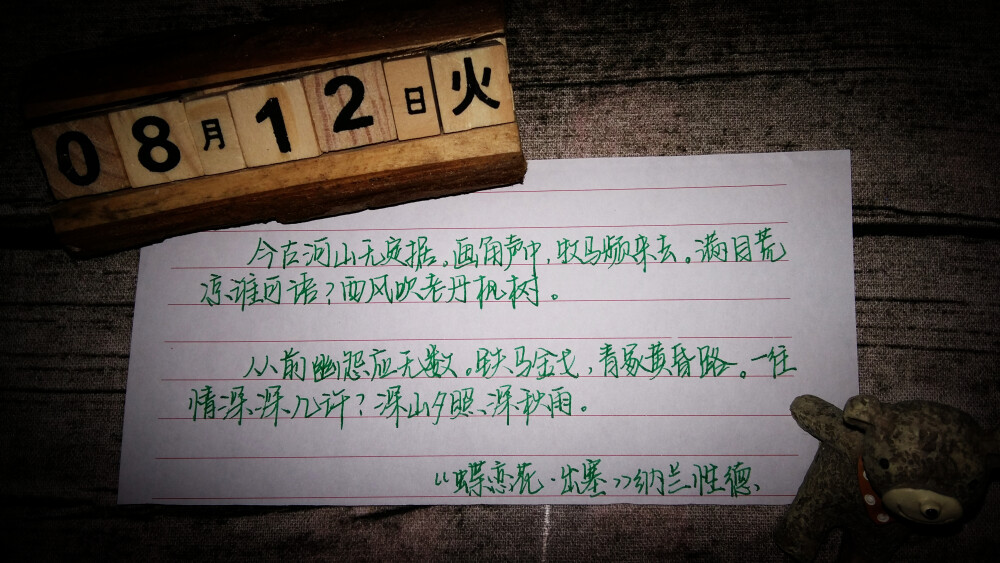 08月12日火
今古河山无定据。画角声中,牧马频来去。满目荒
凉谁可语?西风吹老丹枫树。
从前幽怨应无数。铁马金戈,青冢黄昏路。一往
情深深几许?深山夕照深秋雨。
《蝶恋花·出塞》纳兰性德